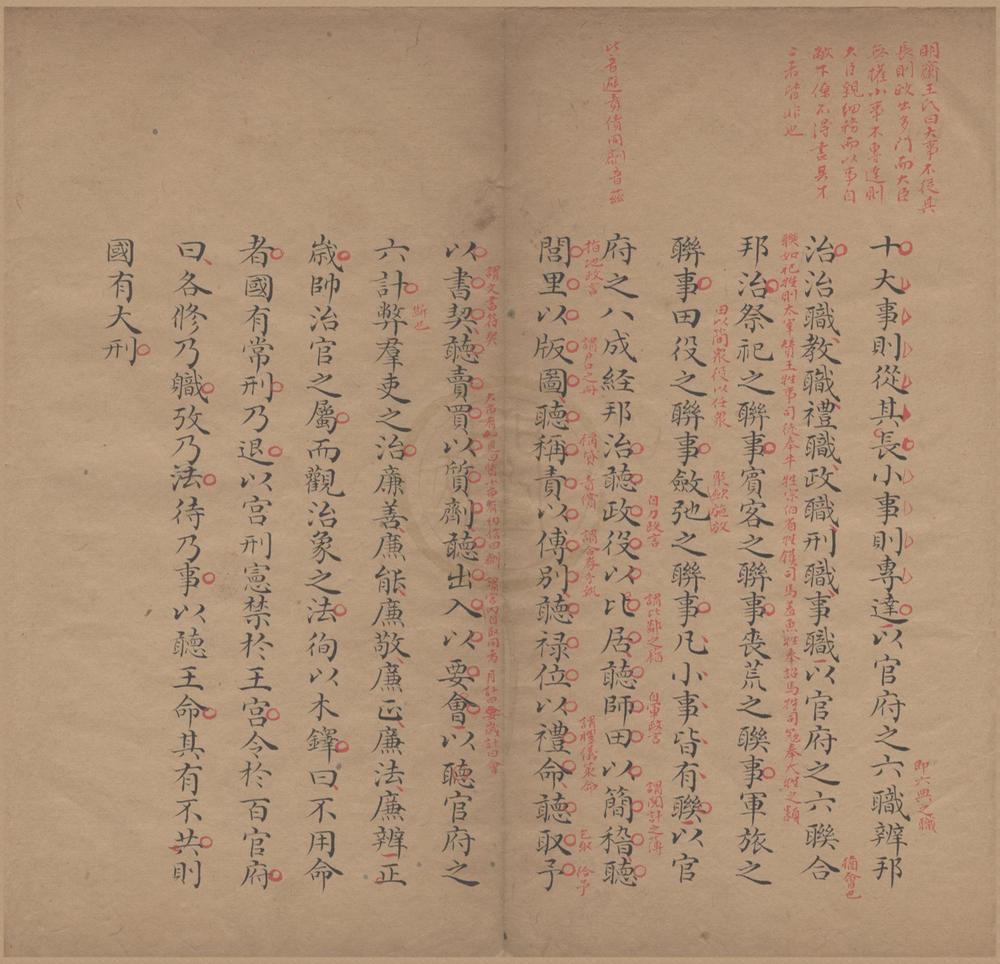 明齋王氏曰大事不從其
長則政出多門而大臣
無權小事不專達則
大臣親細務而以事自
敝下僚不得盡其才
二者皆非也
十大事則從其長小事則專達以官府之六職辨邦
即六典之職
治治職教職禮職政職刑職事職以官府之六聯合
猶會也
聯如祀牲則太宰贊王牲事司徒奉牛牲宗伯省牲鑊司馬羞魚牲奉詔馬牲司寇奉犬牲之類
邦治祭祀之聯事賓客之聯事喪荒之聯事軍旅之
田以簡衆役以任衆
聚歛施放
聯事田役之聯事斂弛之聯事凡小事皆有聯以官
自力政言
謂比鄰之稽
自軍政言
謂閱計之簿
此音避責債同劑音茲
府之八成経邦治聽政役以比居聽師田以簡稽聽
指地政言
謂戶口之冊
稱貸
責償
謂禮儀策命
給予
閭里以版圖聽稱責以傅別聽禄位以禮命聽取予
謂文書符契
月計曰要歲計曰會
以書契聽賣買以質劑聽出入以要會以聽官府之
斷也
六計弊羣吏之治廉善廉能廉敬廉正廉法廉辨正
歲帥治官之屬而觀治象之法徇以木鐸曰不用命
者國有常刑乃退以宮刑憲禁於王宮令於百官府
曰各修乃職攷乃法待乃事以聽王命其有不共則
國有大刑